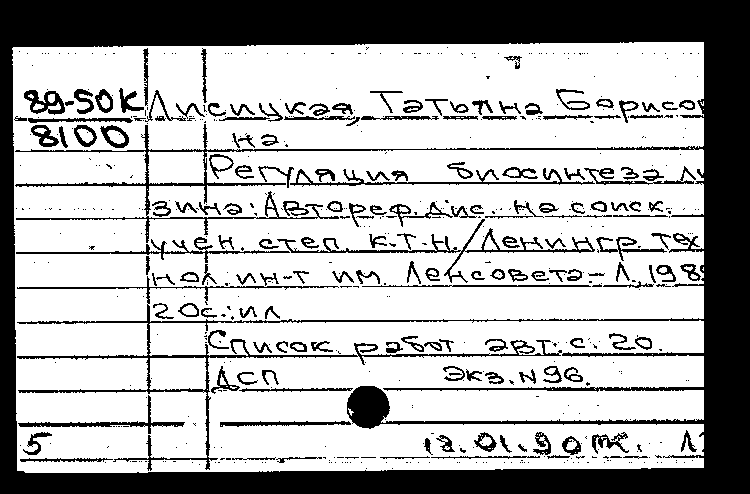 89-50К Лисицкая, Татьяна Борисов
8100 на.
Регуляция биосинтеза ли
зина: Автореф. дис. на соиск.
учен. степ. к.т.н./Ленингр. тех
нол. ин-т им. Ленсовета - Л., 1989
20с.: ил
Список работ авт.: с. 20.
ДСП Экз. N96.
5 12.01.90